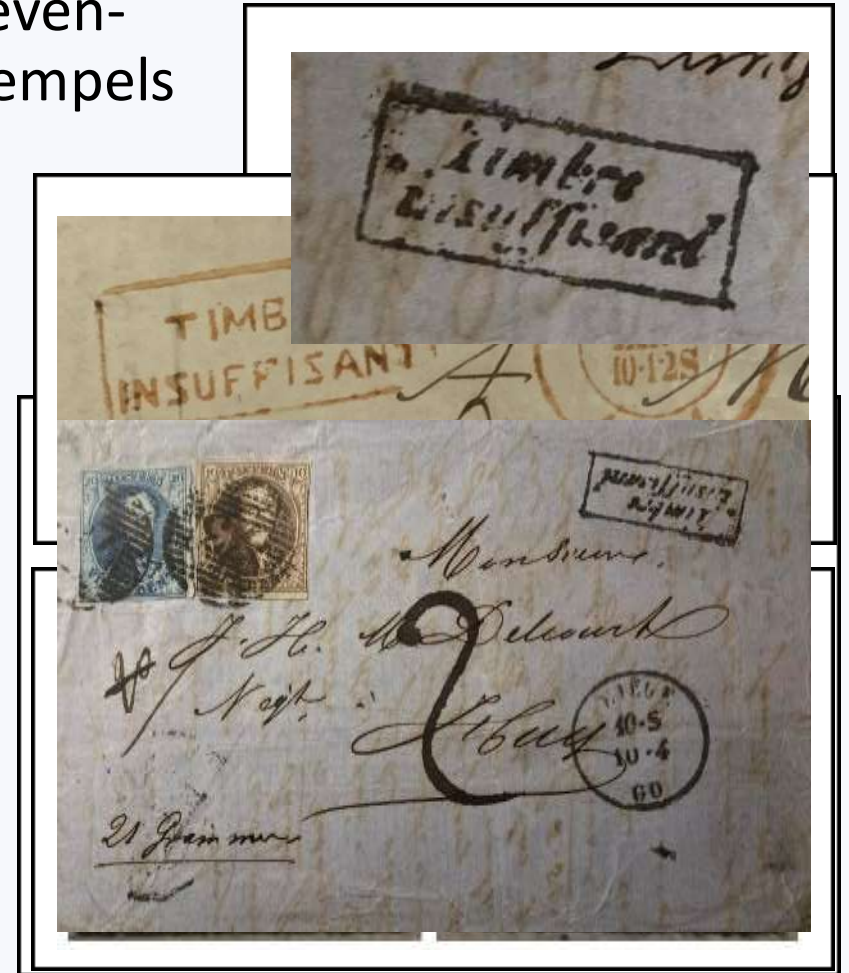 even-
empels
Timbre
insuffisant
TIMB
INSUFFISANT
10·12S
Timbre
insuffisant
Monsieur
J. H. Delcourt
Negt. à
Huy
LIÉGE
10·S
10·4
60
2
21 Grammes